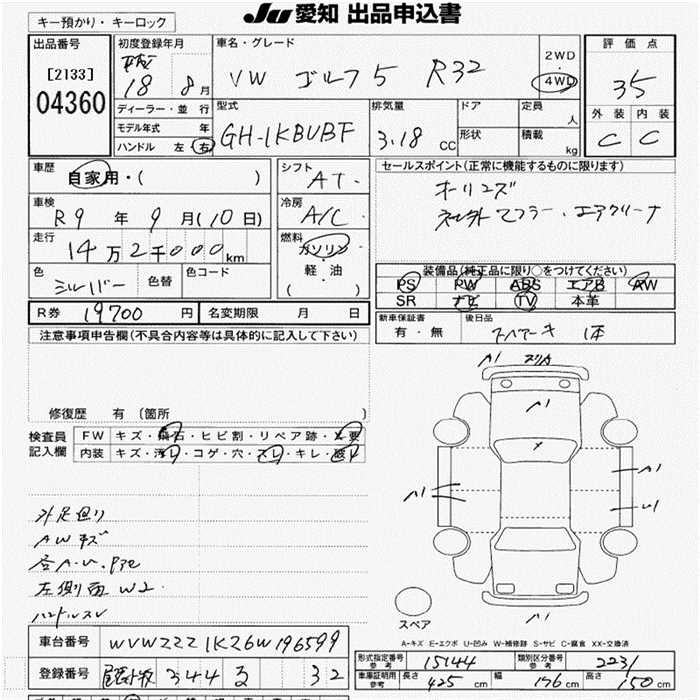 キー預かり・キーロック
JU 愛知 出品申込書
出品番号
[2133]
04360
初度登録年月
18 8月
ディーラー・並行
モデル年式 年
ハンドル 左 右
車名・グレード
VW ゴルフ5 R32
2WD
・
4WD
型式
GH-1KBUBF
排気量
3.18 CC
ドア
形状
定員
人
積載
kg
評価点
3.5
外装 内装
C C
車歴
自家用・( )
車検
R9 年 9 月(10日)
走行
14万2千000km
色
シルバー
色替
色コード
シフト
AT
冷房
A/C
燃料
ガソリン
・
軽・油
( )
セールスポイント(正常に機能するものに限ります)
ホーリンズ
社外マフラー・エアクリーナ
装備品(純正品に限り○をつけてください)
PS PW ABS エアB AW
SR ナビ TV 本革
R券 19700 円
名変期限 月 日
新車保証書
有・無
後日品
スペアキー 1本
注意事項申告欄(不具合内容等は具体的に記入して下さい)
修復歴 有 (箇所 )
検査員
記入欄
FW キズ・飛石・ヒビ割・リペア跡・×要
内装 キズ・汚レ・コゲ・穴・スレ・キレ・破レ
外足廻り
AWキズ
左側面 W2
ハンドルスレ
A1
A1
A1
A1
U1
A1
スペア
A-キズ E-エクボ U-凹み W-補修跡 S-サビ C-腐食 XX-交換済
車台番号 WVWZZZ1KZ6W196599
登録番号 344 る 32
形式指定番号
参考
15144
類別区分番号
参考
2231
車庫証明用
参考
長さ 425 cm 幅 176 cm 高さ 150 cm